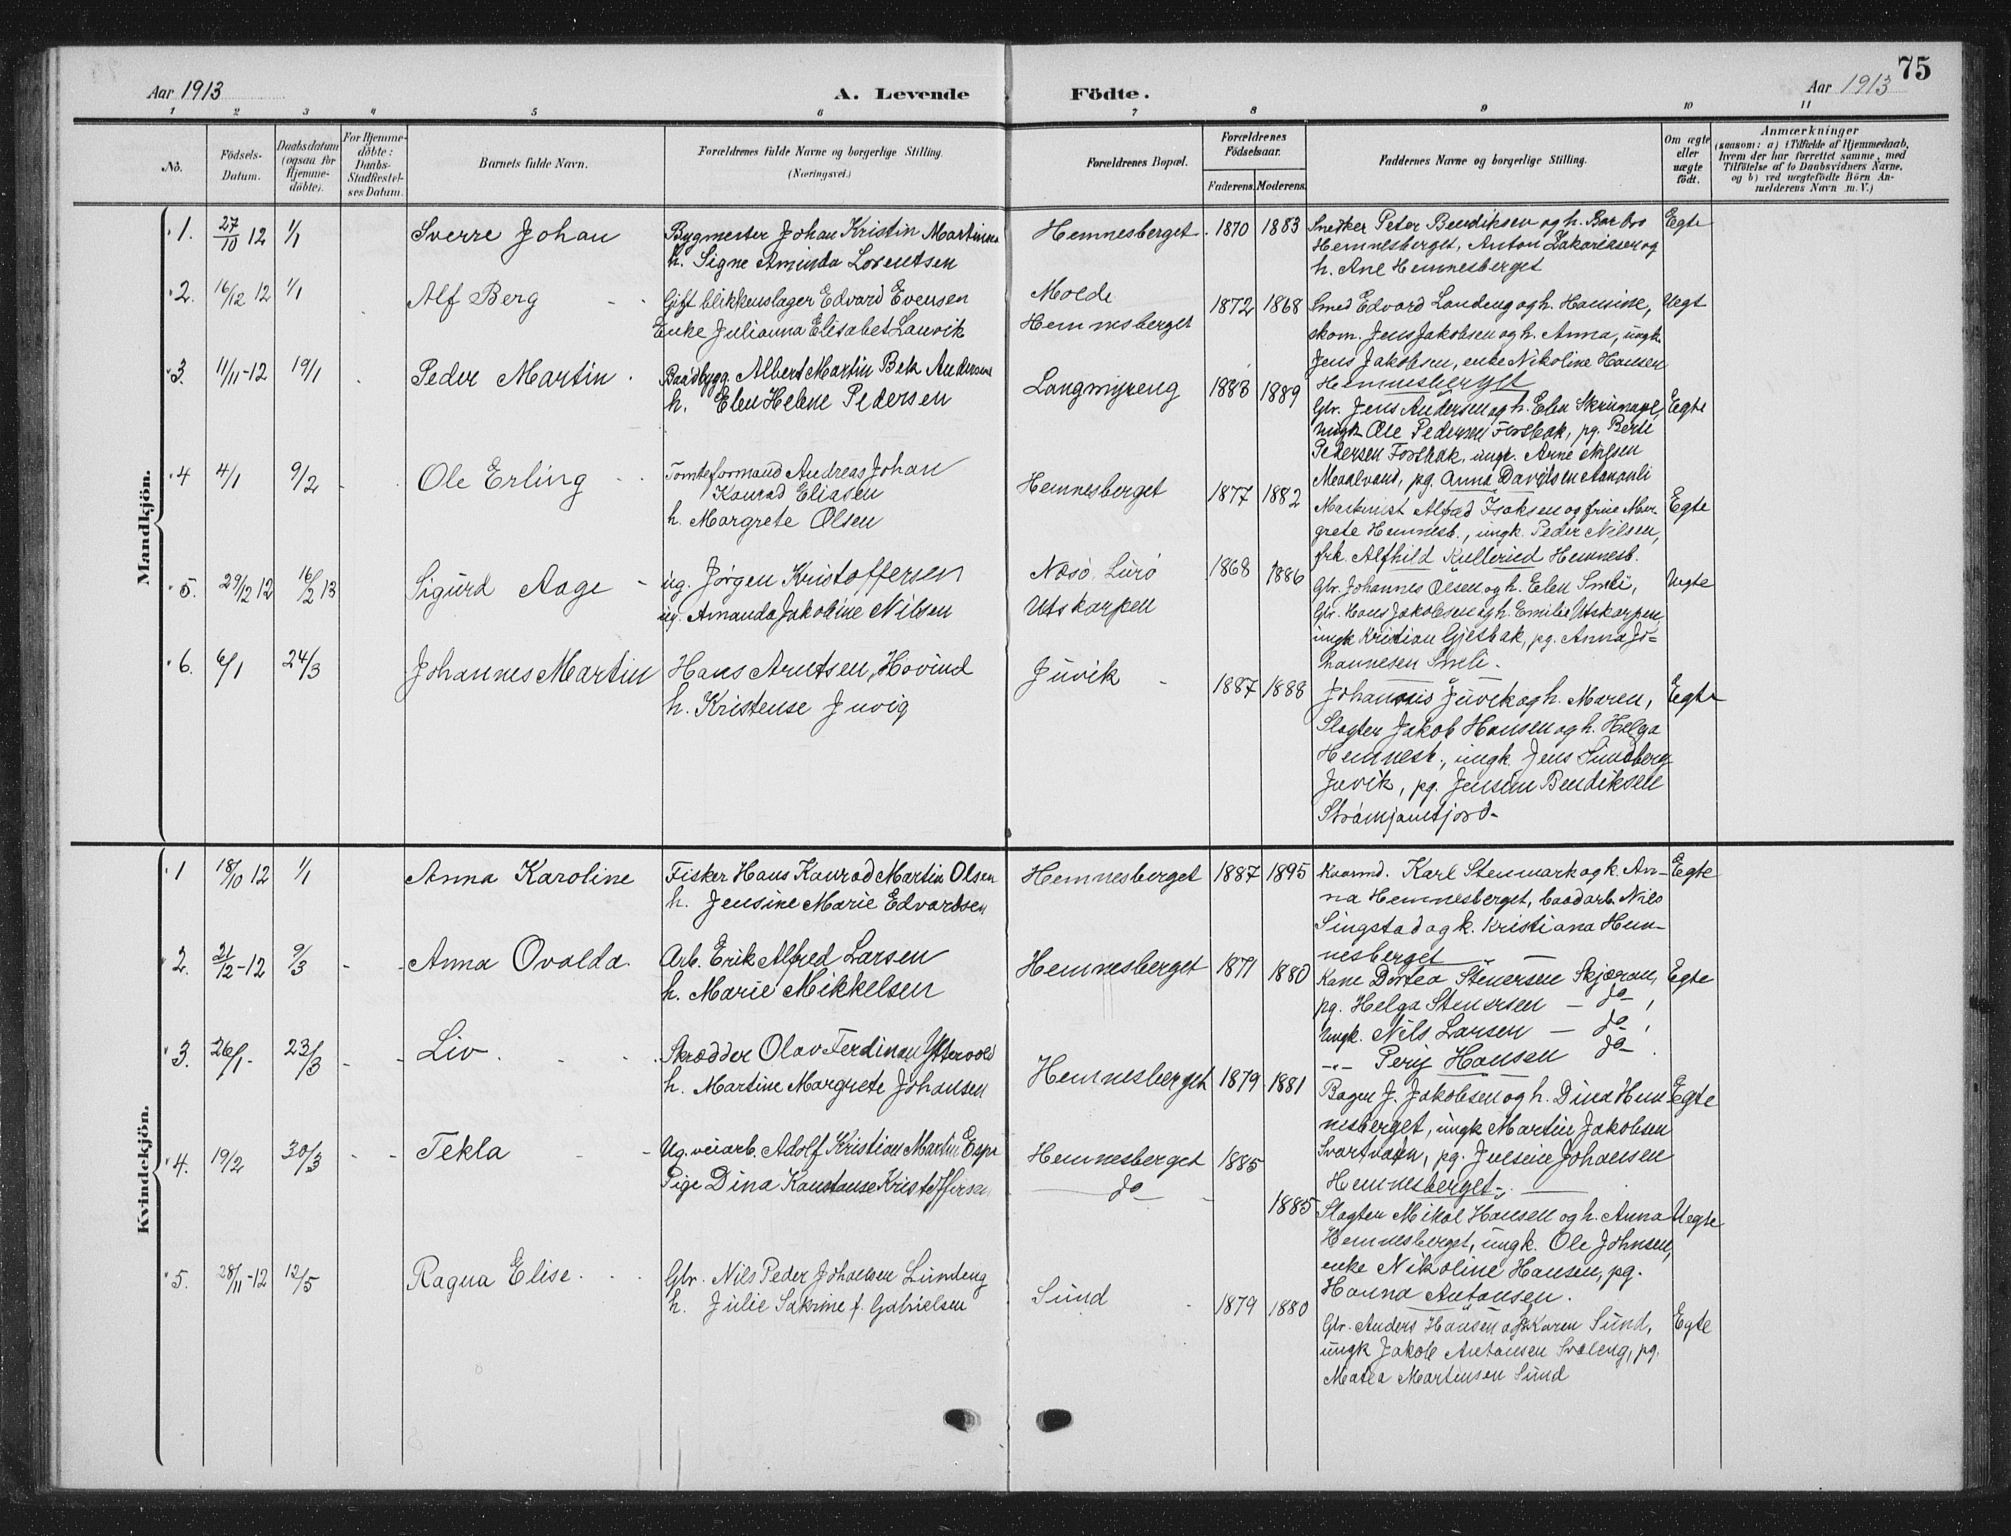 75
Aar 1913
A. Levende Födte.
Aar 1913
1 2 3 4 5 6 7 8 9 10 11
No.
Födsels-
Datum.
Daabsdatum
(ogsaa for
Hjemme-
döbte).
For Hjemme-
döbte:
Daabs-
Stadfæstel-
ses Datum.
Barnets fulde Navn.
Forældrenes fulde Navne og borgerlige Stilling.
(Næringsvei.)
Forældrenes Bopæl.
Forældrenes
Födselsaar.
Faderens. Moderens.
Faddernes Navne og borgerlige Stilling.
Om ægte
eller
uægte
födt.
Anmærkninger
(saasom: a) i Tilfælde af Hjemmedaab,
hvem der har forrettet samme, med
Tilföielse af to Daabsvidners Navne,
og b) ved uægtefödte Börn An-
melderens Navn m. V.)
Mandkjön.
1. 27/10 12 1/1 Sverre Johan
Bygmester Johan Kristin Martinus
h. Signe Aminda Lorentsen
Hemnesberget 1870 1883
Snedker Peter Bendiksen og h. Barbo
Hemnesberget, Anton Zakariesen og
h. Ane Hemnesberget
Egte
2. 16/12 12 1/1 Alf Berg
Gift blikkenslager Edvard Evensen
Enke Julianna Elisabet Lauvik
Molde
Hemnesberget
1872 1868
Smed Edvard Landeng og h. Hansine,
skom. Jens Jakobsen og h. Anna, ungk.
Jens Jakobsen, enke Nikoline Hansen
Hemnesberget
Uegt
3. 11/11-12 19/1 Peder Martin
Baadbygg. Albert Martin Bek Andersen
h. Elen Helene Pedersen
Langmyreng 1888 1889
Gbr. Jens Andersen og h. Elen
ungk Ole Pedersen Forsbak, pg. Berit
Pedersen Forsbak, ungk. Arne Nilsen
Maalvand, pg. Anna Davidsen
Egte
4 4/1 9/2 Ole Erling
Tomteformand Andreas Johan
Konrad Eliasen
h. Margrete Olsen
Hemnesberget 1877 1882
Maskinist Alfred Isaksen og frue Mar-
grete Hemnesb., ungk. Peder Nilsen,
frk. Alfhild Kulleried Hemnesb.
Egte
5. 29/12 12 16/2 13 Sigurd Aage
ug. Jørgen Kristoffersen
ug. Amanda Jakobine Nilsen
Næsø, Lurø
Utskarpen
1868 1886
Gbr. Johannes Olsen og h. Elen Smeli,
Gbr. Hans Jakobsen og h. Emilie Utskarpen,
ungk Kristian Gjesbak, pg. Anna Jo-
hannesen Smeli.
Uegte
6. 6/1 24/3 Johannes Martin
Hans Arntsen, Hovind
h. Kristense Juvig
Juvik 1887 1888
Johannis Juvik og h. Maren,
Slagter Jakob Hansen og h. Helga
Hemnesb., ungk. Jens Sundberg
Juvik, pg. Jensine Bendiksen
Strømjanfjord
Egte
Kvindekjön.
1 18/10 12 1/1 Anna Karoline
Fisker Hans Konrad Martin Olsen
h. Jensine Marie Edvardsen
Hemnesberget 1887 1895
Kvarmd. Karl Stenmark og k. An-
na Hemnesberget, baadarb. Nils
Singstad og k. Kristiana Hem-
nesberget
Egte
2. 21/12-12 9/3 Anna Ovalda
Arb. Erik Alfred Larsen
h. Marie Mikkelsen
Hemnesberget 1877 1880
Kone Dortea Stenersen Skjæran,
pg. Helga Stenersen — do,
ungk. Nils Larsen — do,
-"- Perij Hansen do.
Egte
3. 26/1 23/3 Liv
Skrædder Olav Ferdinan Yttervold
h. Martine Margrete Johansen
Hemnesberget 1879 1881
Bager J. Jakobsen og h. Dina Hem-
nesberget, ungk Martin Jakobsen
Svartvatn, pg. Julsine Johansen
Hemnesberget.
Egte
4. 19/2 30/3 Tekla
Ug. veiarb. Adolf Kristian Martin Espe
Pige Dina Konstanse Kristoffersen
Hemnesberget
do
1885 1885
Slagter Mikal Hansen og h. Anna
Hemnesberget, ungk. Ole Johnsen,
enke Nikoline Hansen, pg.
Hanna Antonsen.
Uegte
5. 28/11-12 12/5 Ragna Elise
Gbr. Nils Peder Johansen Lundeng
h. Julie Sakrine f. Gabrielsen
Sund 1879 1880
Gbr. Anders Hansen og h. Karen Sund,
ungk Jakob Antonsen Svaleng, pg.
Matea Martinsen Sund
Egte